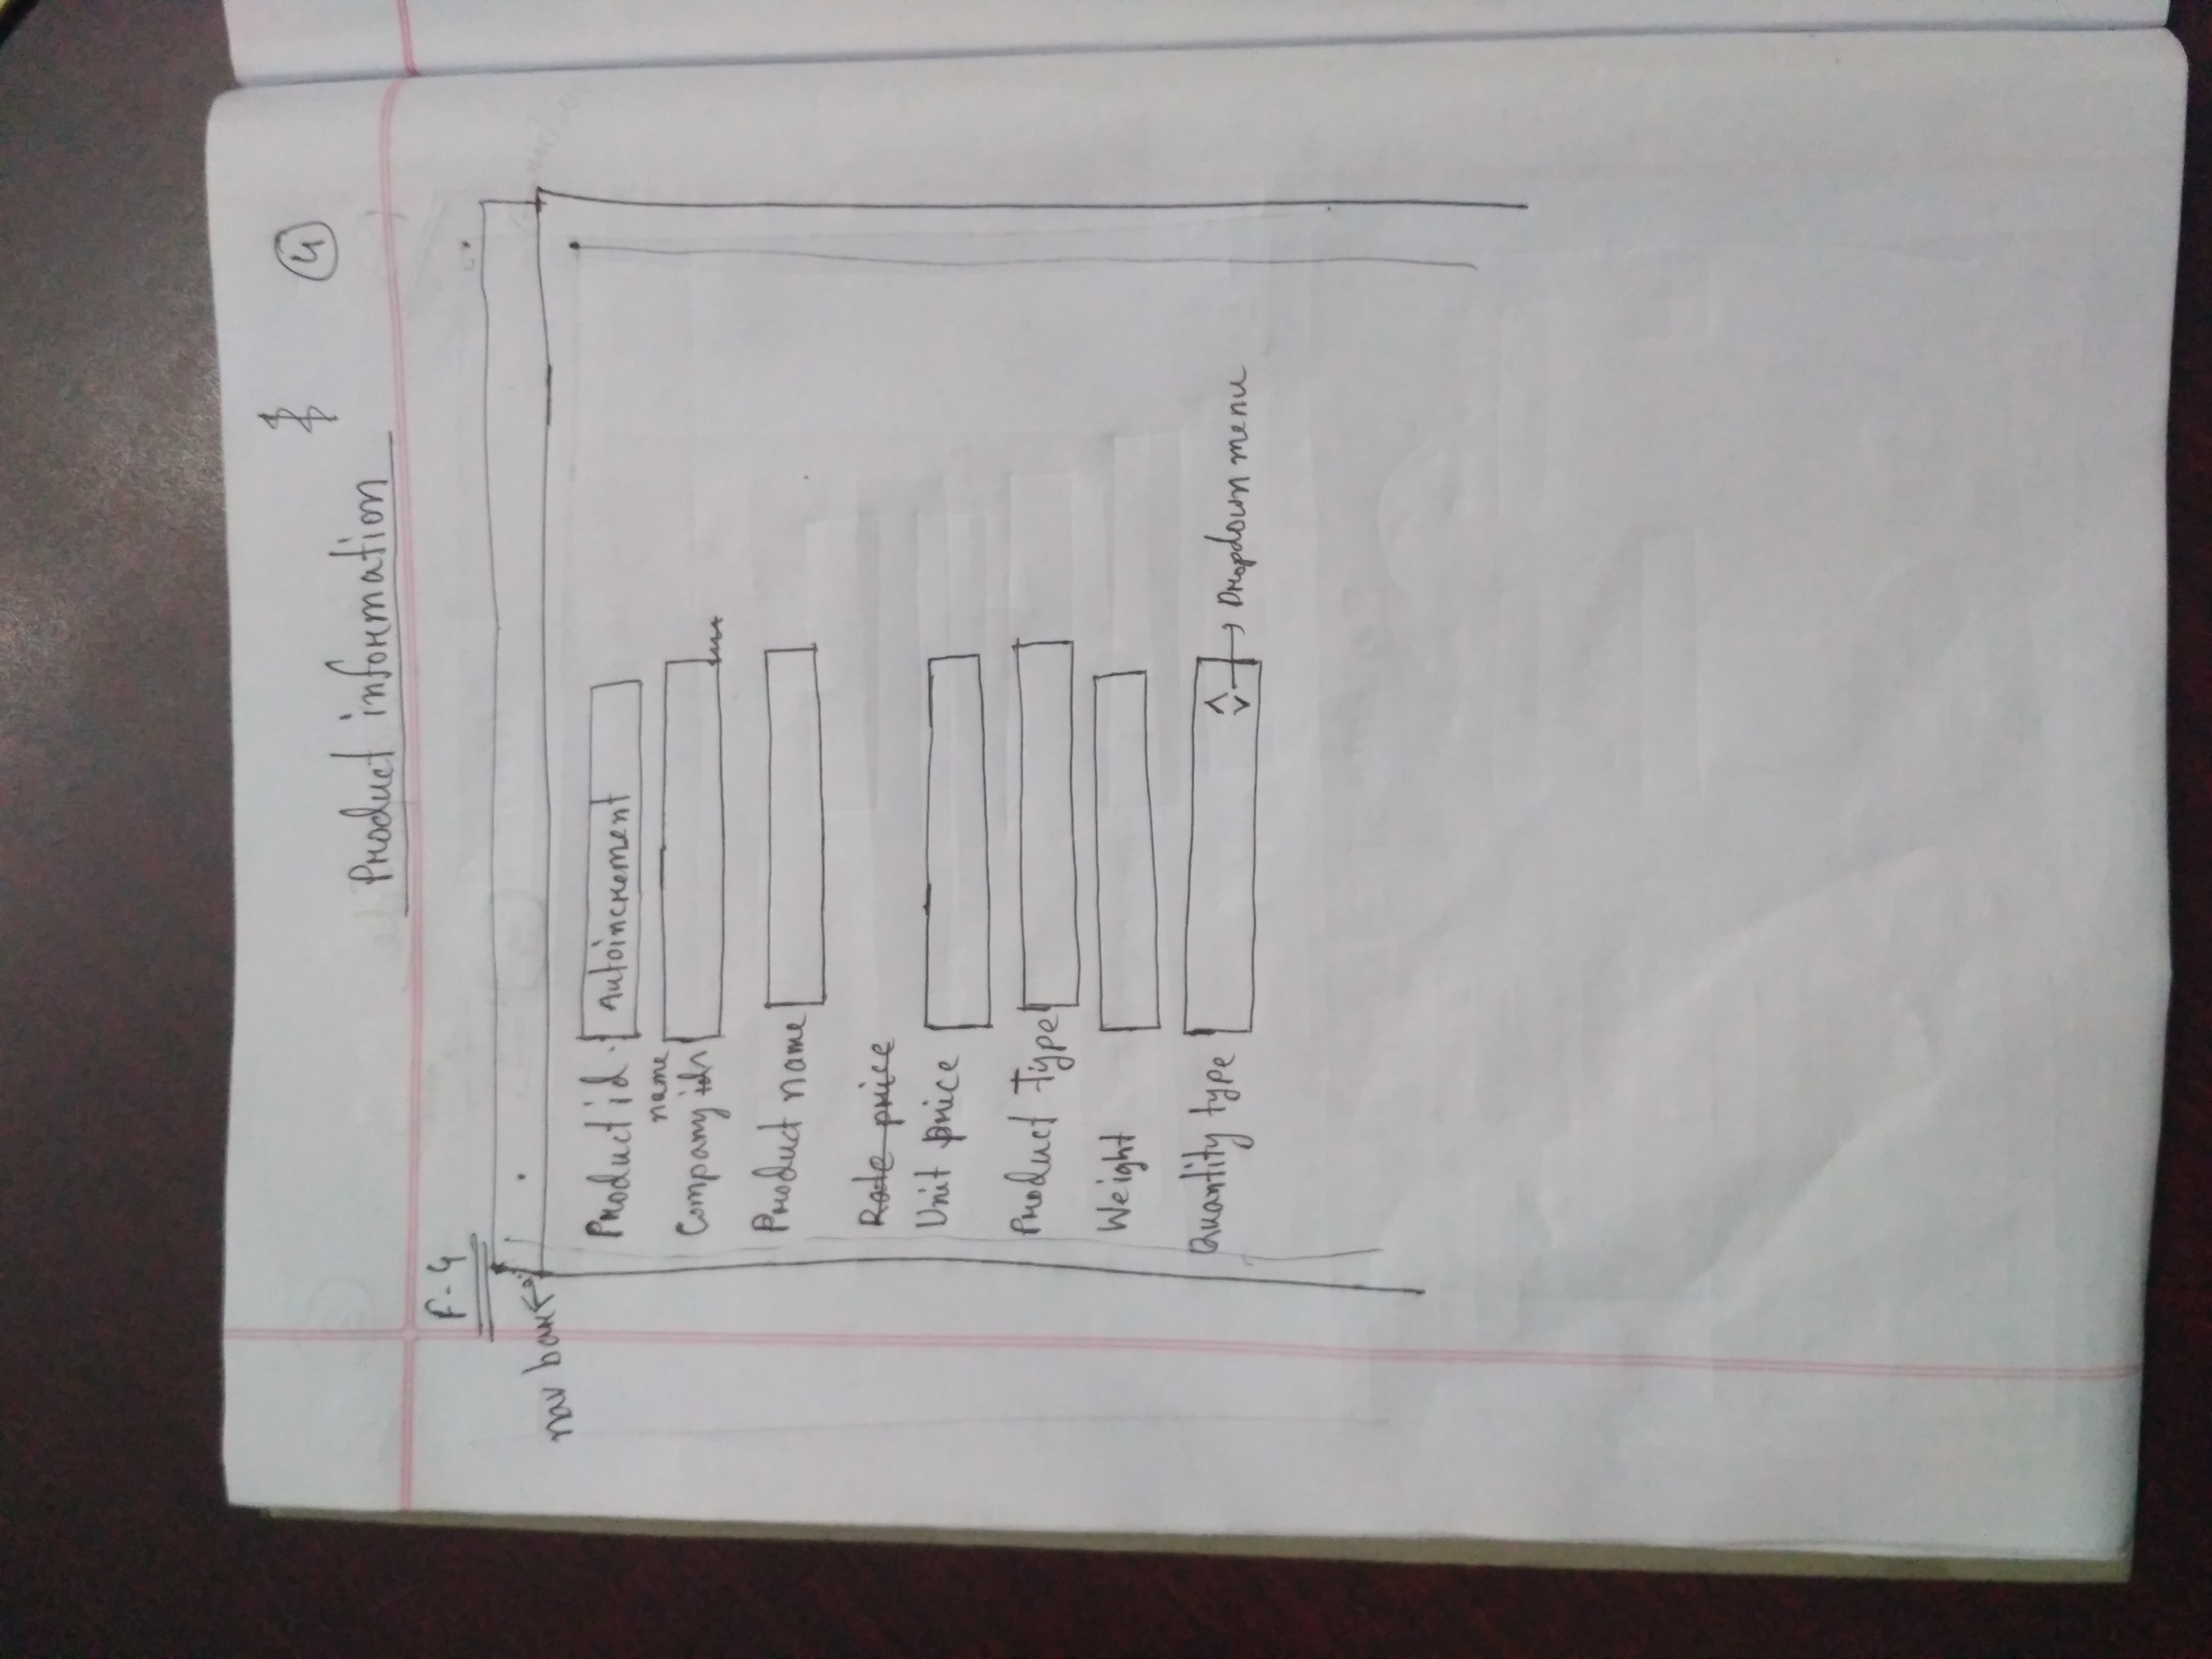 4
Product information
F-4
nav bar
Product id Autoincrement
name
Company id
Product name
Rate price
Unit price
Product Type
Weight
Quantity type Dropdown menu